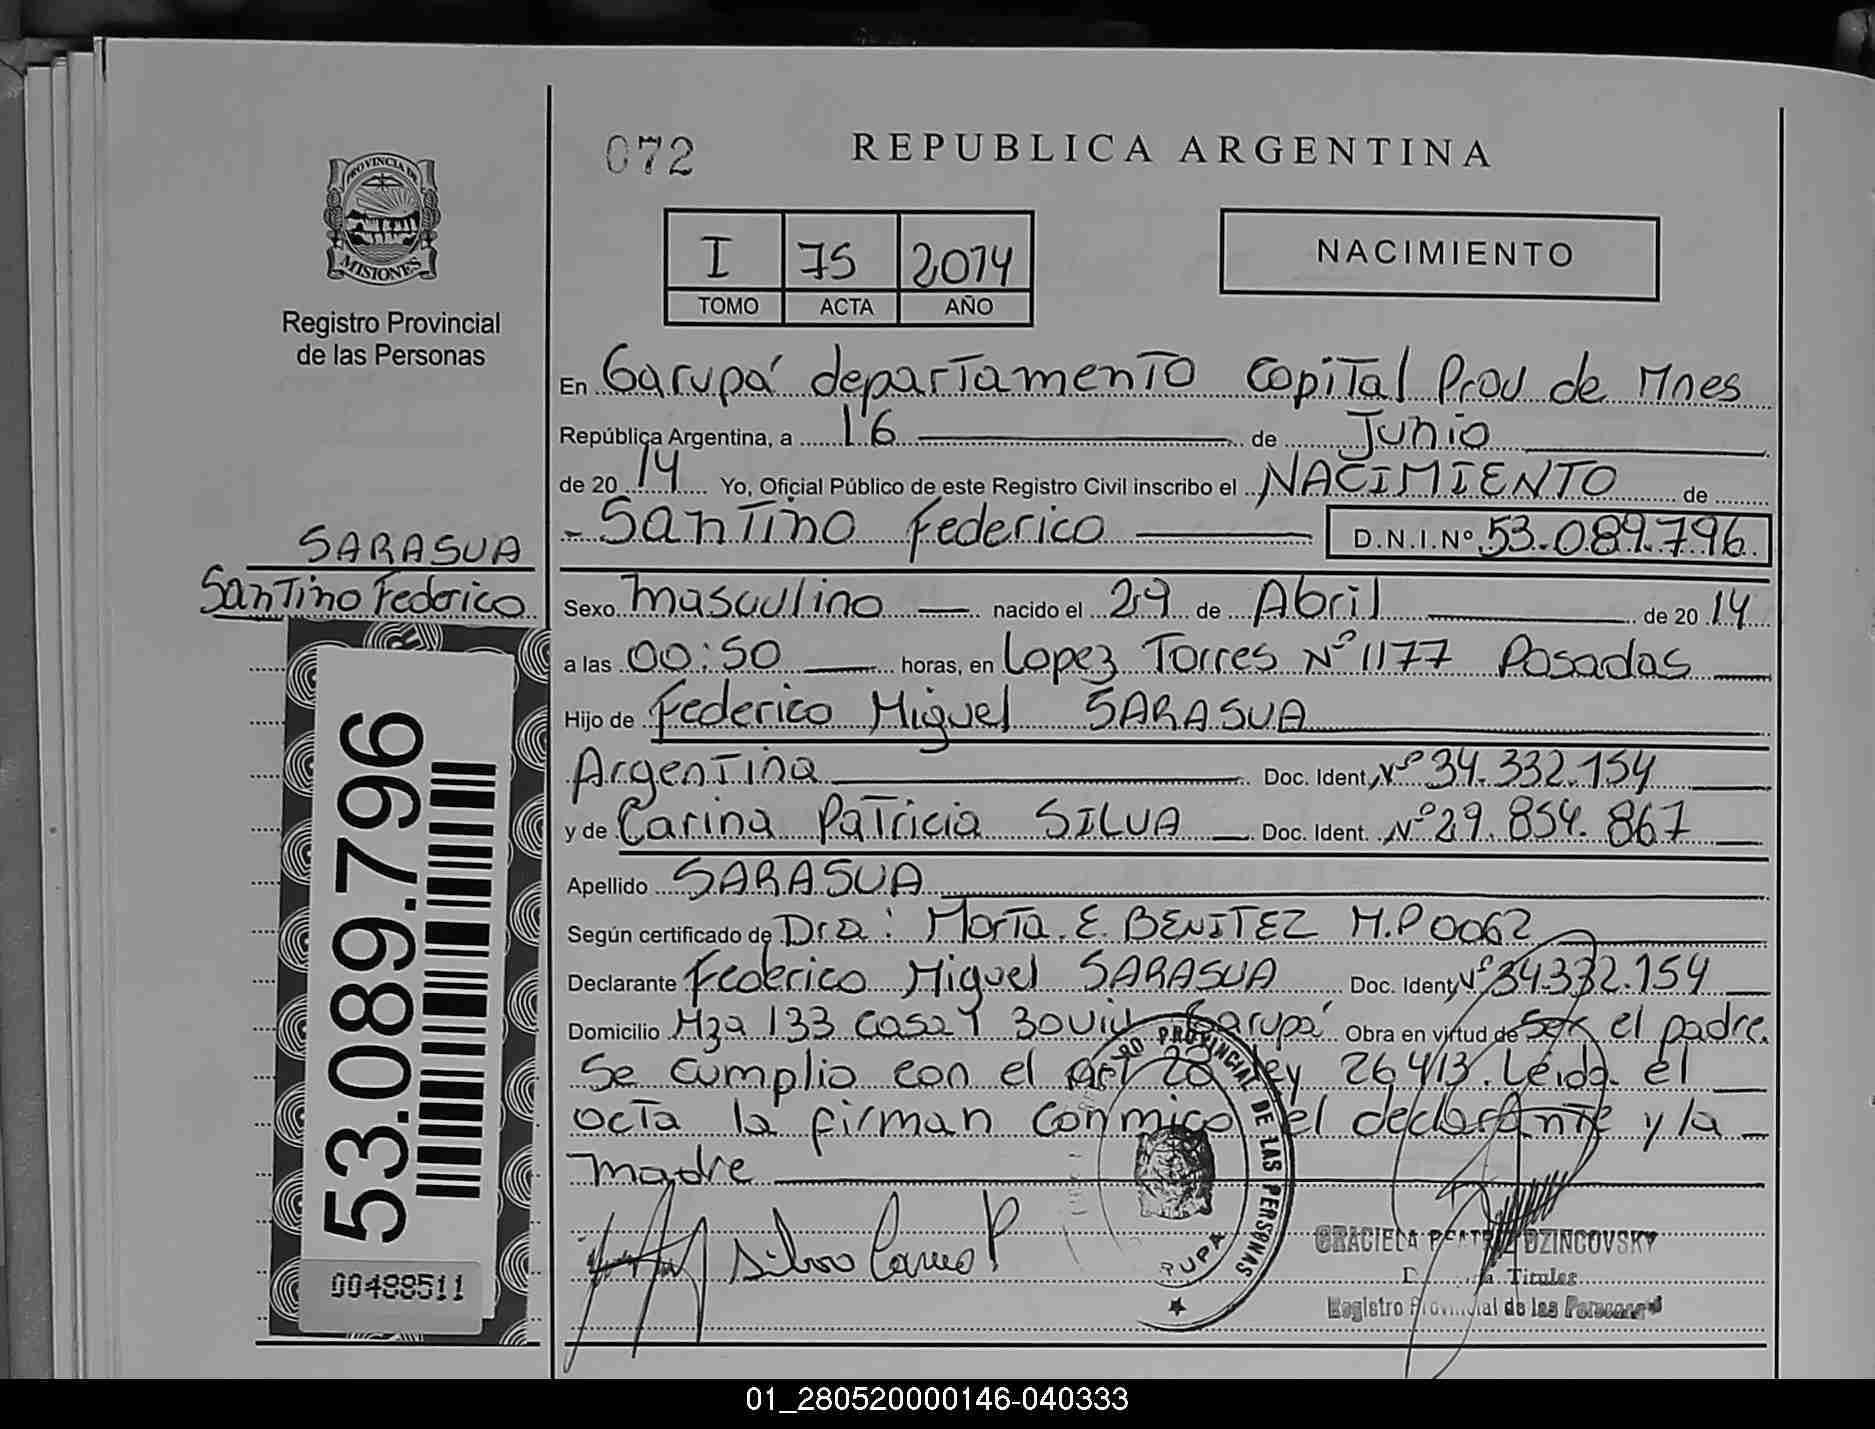 072
REPUBLICA ARGENTINA
PROVINCIA DE
MISIONES
Registro Provincial
de las Personas
I 75 2014
TOMO ACTA AÑO
NACIMIENTO
En Garupá departamento Capital Prov de Mnes
República Argentina, a 16 de Junio
de 20 14 Yo, Oficial Público de este Registro Civil inscribo el NACIMIENTO de
Santino Federico D.N.I.Nº 53.089.796
SARASUA
Santino Federico
Sexo masculino nacido el 29 de Abril de 20 14
a las 00:50 horas, en Lopez Torres Nº 1177 Posadas
Hijo de Federico Miguel SARASUA
Argentina Doc. Ident. Nº 34.332.154
y de Carina Patricia SILVA Doc. Ident. Nº 29.854.867
Apellido SARASUA
Según certificado de Dra: Marta E. BENITEZ M.P 0062
Declarante Federico Miguel SARASUA Doc. Ident. Nº 34.332.154
Domicilio Mza 133 casa 1 Garupá Obra en virtud de Ser el padre.
Se cumplio con el Art 28 Ley 26.413. Leida el
acta la firman conmigo el declarante y la
madre
53.089.796
00488511
Silva Carina P
PROVINCIAL DE LAS PERSONAS
GRACIELA DZINCOVSKY
Titular
Registro Provincial de las Personas
01_280520000146-040333